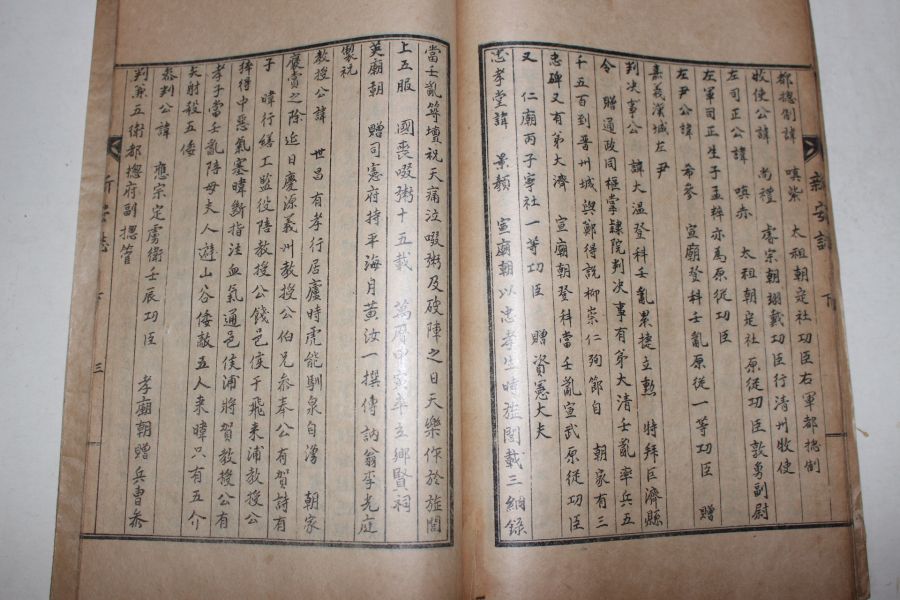 都摠制諱 嗔紫 太祖朝定社功臣右軍都摠制
牧使公諱 尚禮 睿宗朝翊戴功臣行清州牧使
左司正公諱 嗔亦 太祖朝定社原從功臣敦勇副尉
左軍司正生子孟粹亦為原從功臣
左尹公諱 希參 宣廟登科壬亂原從一等功臣 贈
嘉義漢城左尹
判决事公 諱大温登科壬亂累捷立勲 特拜巨濟縣
令 贈通政同樞掌隷院判决事有弟大清壬亂率兵五
千五百到晋州城與鄭得説柳崇仁殉節自 朝家有三
忠碑又有弟大濟 宣廟朝登科當壬亂宣武原從功臣
又 仁廟丙子寧社一等功臣 贈資憲大夫
忠孝堂諱 景頼 宣廟朝以忠孝生時旌閭載三綱錄
當壬亂等壇祝天痛泣啜粥及破陣之日天樂作於旌閭
上五服 國喪啜粥十五載 萬曆甲寅年立鄉賢祠
英廟朝 贈司憲府持平海月黄汝一撰傳訥翁李光庭
製祝
教授公諱 世昌有孝行居廬時虎能馴泉自湧 朝家
褒賞之除近日慶源義州教授公伯兄叅奉公有賀詩有
子 暐行繕工監役陪教授公餞邑倅于飛来浦教授公
猝得中惡氣塞暐斷指注血氣通邑倅浦將賀教授公有
孝子當壬亂陪母夫人遊山谷倭敵五人来暐只有五介
矢射殺五倭
叅判公諱 應宗定虜衛壬辰功臣 孝廟朝贈兵曹叅
判兼五衛都摠府副摠管
新安誌 下 三